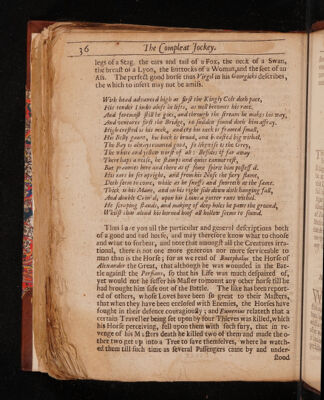 36
The Compleat Jockey.
legs of a Stag, the ears and tail of a Fox, the neck of a Swan,
the breast of a Lyon, the buttocks of a Woman, and the feet of an
Ass. The perfect good horse thus Virgil in his Georgicks describes,
the which to insert may not be amiss.
With head advanced high at first the Kingly Colt doth pace,
His tender limbs aloft he lifts, as well becomes his race.
And foremost still he goes, and through the stream he makes his way,
And ventures first the Bridge, no suddain sound doth him affray.
High crested is his neck, and eke his neck is framed small,
His Belly gaunt, his back is broad, and breasted big withal.
The Bay is always counted good, so likewise is the Grey,
The white and yellow worst of all: Besides if far away
There haps a noise, he stamps and quiet cannot rest,
But praunces here and there as if some spirit him possess'd.
His ears he sets upright, and from his Nose the fiery flame,
Doth seem to come, while as he snuffs and snorteth at the same.
Thick is his Mane, and on his right side down doth hanging fall,
And double Chin'd, upon his Loins a gutter runs withal.
He scraping stands, and making of deep holes he paws the ground,
Whilst that aloud his horned hoof all hollow seems to sound.
Thus have you all the particular and general descriptions both
of a good and bad horse, and may therefore know what to choose
and what to forbear, and note that amongst all the Creatures irra-
tional, there is not one more generous nor more serviceable to
man than is the Horse; for as we read of Bucephalus the Horse of
Alexander the Great, that although he was wounded in the Bat-
tle against the Persians, so that his Life was much despaired of,
yet would not he suffer his Master to mount any other horse till he
had brought him safe out of the Battle. The like has been report-
ed of others, whose Loves have been so great to their Masters,
that when they have been enclosed with Enemies, the Horses have
fought in their defence couragiously; and Eumenius relateth that a
certain Traveller being set upon by four Thieves was killed, which
his Horse perceiving, fell upon them with such fury, that in re-
venge of his Masters death he killed two of them and made the o-
ther two get up into a Tree to save themselves, where he watch-
ed them till such time as several Passengers came by and under-
stood